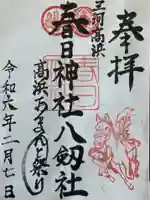 奉拝
三河高浜
春日神社八剱社
高浜おまんと祭り
令和六年二月七日